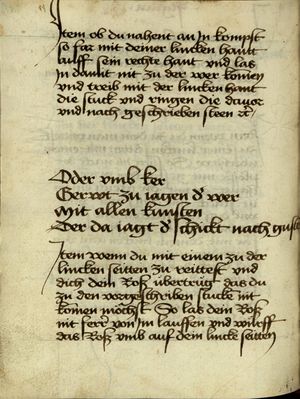 Item ob du nahent an In kompst
so far mit deiner lincken hantt
auff sein rechte hant vnd las
In damit mit zu der wer komen
vnd treib mit der lincken hant
die stuck vnd ringen die dauor
vnd nach geschrieben steen etc

Oder vmb ker
Gerwt zu iagen d' wer
Mit allen kunsten
Der da iagt d' schickt nach gusten

Item wenn du mit einem zu der
lincken seitten zu reittest vnd
dich dein Roß übertrüg das du
zu den vorgeschriben stucke nit
komen möchst So las dein Roß
nit ferr von Im lauffen vnd würff
das Roß vmb auf dein lincke seitten